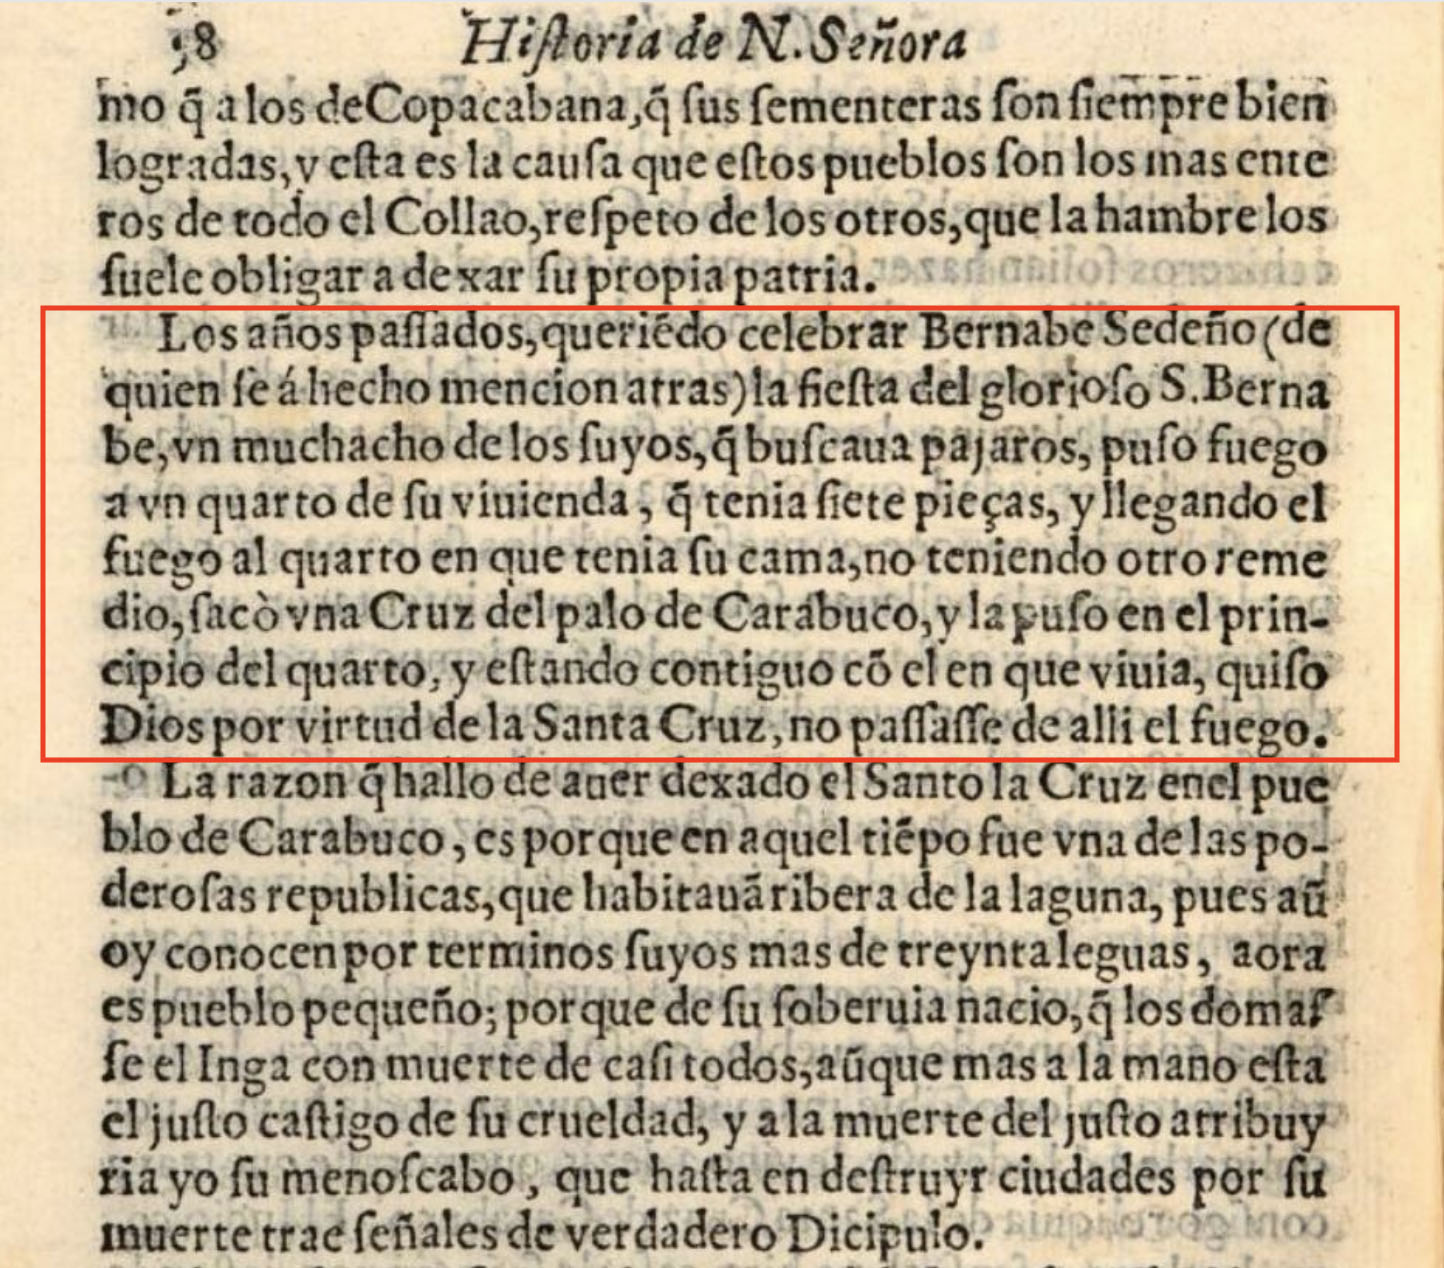 58 Hiſtoria de N. Señora
mo q̃ a los de Copacabana, q̃ ſus ſementeras ſon ſiempre bien
logradas, y eſta es la cauſa que eſtos pueblos ſon los mas ente
ros de todo el Collao, reſpeto de los otros, que la hambre los
ſuele obligar a dexar ſu propia patria.
Los años paſſados, queriẽdo celebrar Bernabe Sedeño (de
quien ſe á hecho mencion atras) la fieſta del glorioſo S. Berna
be, vn muchacho de los ſuyos, q̃ buſcaua pajaros, puſo fuego
a vn quarto de ſu viuienda, q̃ tenia ſiete pieças, y llegando el
fuego al quarto en que tenia ſu cama, no teniendo otro reme
dio, ſacò vna Cruz del palo de Carabuco, y la puſo en el prin-
cipio del quarto, y eſtando contiguo cõ el en que viuia, quiſo
Dios por virtud de la Santa Cruz, no paſſaſſe de alli el fuego.
La razon q̃ hallo de auer dexado el Santo la Cruz enel pue
blo de Carabuco, es porque en aquel tiẽpo fue vna de las po-
deroſas republicas, que habitauã ribera de la laguna, pues aũ
oy conocen por terminos ſuyos mas de treynta leguas, aora
es pueblo pequeño; porque de ſu ſoberuia nacio, q̃ los domaſ
ſe el Inga con muerte de caſi todos, aũque mas a la mano eſta
el juſto caſtigo de ſu crueldad, y a la muerte del juſto atribuy
ria yo ſu menoſcabo, que haſta en deſtruyr ciudades por ſu
muerte trae ſeñales de verdadero Dicipulo.